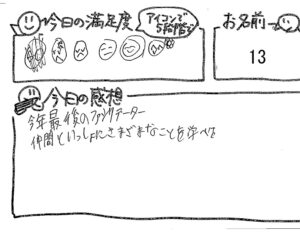 今日の満足度
アイコンで
5段階
お名前
13
今日の感想
今年最後のファシリテーター
仲間といっしょにさまざまなことを学べる